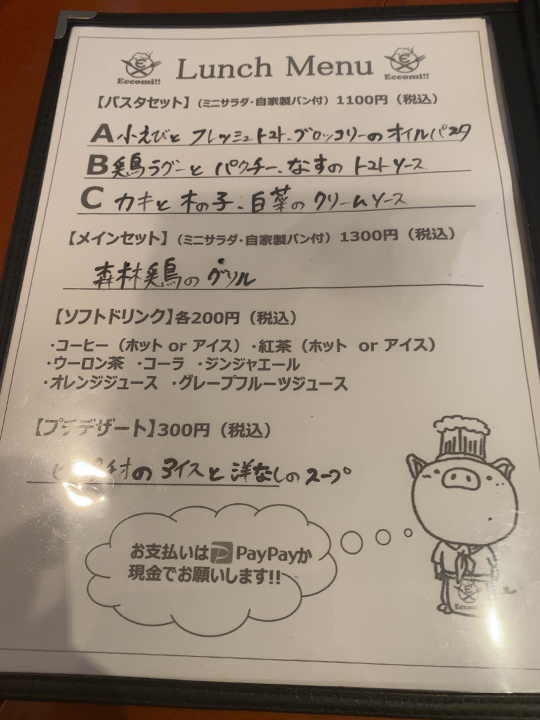 Eccomi!!
Lunch Menu
Eccomi!!
【パスタセット】(ミニサラダ・自家製パン付) 1100円（税込）
A 小えびと フレッシュトマト、ブロッコリーのオイルパスタ
B 鶏ラグーと パクチー、なすの トマトソース
C カキと 木の子、白菜の クリームソース
【メインセット】(ミニサラダ・自家製パン付) 1300円（税込）
森林鶏の グリル
【ソフトドリンク】各200円（税込）
・コーヒー（ホット or アイス）・紅茶（ホット or アイス）
・ウーロン茶 ・コーラ ・ジンジャエール
・オレンジジュース ・グレープフルーツジュース
【プチデザート】300円（税込）
ピスタチオの アイスと 洋なしの スープ
お支払いは PayPayか
現金でお願いします!!
Eccomi!!